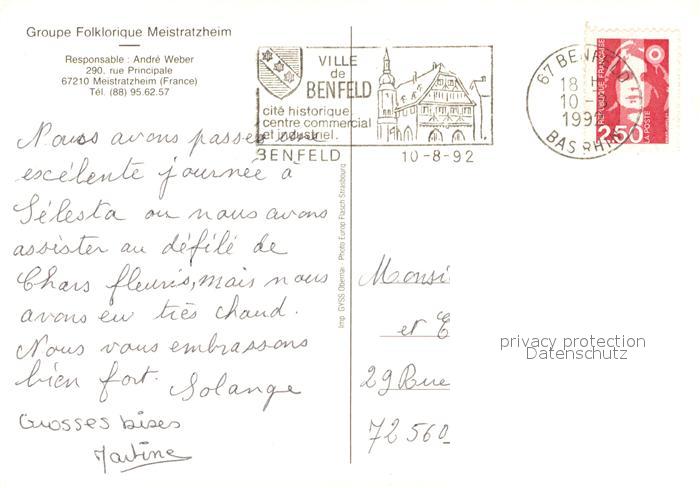 Groupe Folklorique Meistratzheim
Responsable : André Weber
290, rue Principale
67210 Meistratzheim (France)
Tél. (88) 95.62.57
VILLE
de
BENFELD
cité historique
centre commercial
et industriel.
BENFELD 10-8-92
67 BENFELD
18 H
10-8
1992
BAS RHIN
REPUBLIQUE FRANÇAISE
2,50
LA POSTE
Nous avons passée une
excélente journée à
Sélesta ou nous avons
assister au défilé de
Chars fleuris, mais nous
avons eu très chaud.
Nous vous embrassons
bien fort. Solange
Grosses bises
Martine
Imp. GYSS Obernai - Photo Europ Flasch Strasbourg
Monsi
et E
29 Rue
72560
privacy protection
Datenschutz